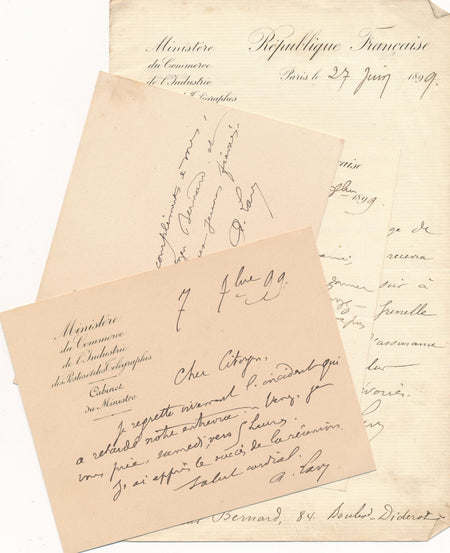 Ministère
du Commerce
de l'Industrie
République Française
Paris le 27 Juin 1899.
1899.
compliments à mes
Bernard et
A. Lavy
ge de
recevra
soir à
Grenelle
assurance
Lavy
Bernard, 84 Boulevd Diderot
Ministère
du Commerce
de l'Industrie
des Postes et des Télégraphes
Cabinet
du Ministre
7 7bre 99
Cher Citoyen,
Je regrette vivement l'incident qui
a retardé notre entrevue. Venez, je
vous prie, samedi vers 5 heures.
J'ai appris le succès de la réunion.
Salut cordial.
A. Lavy